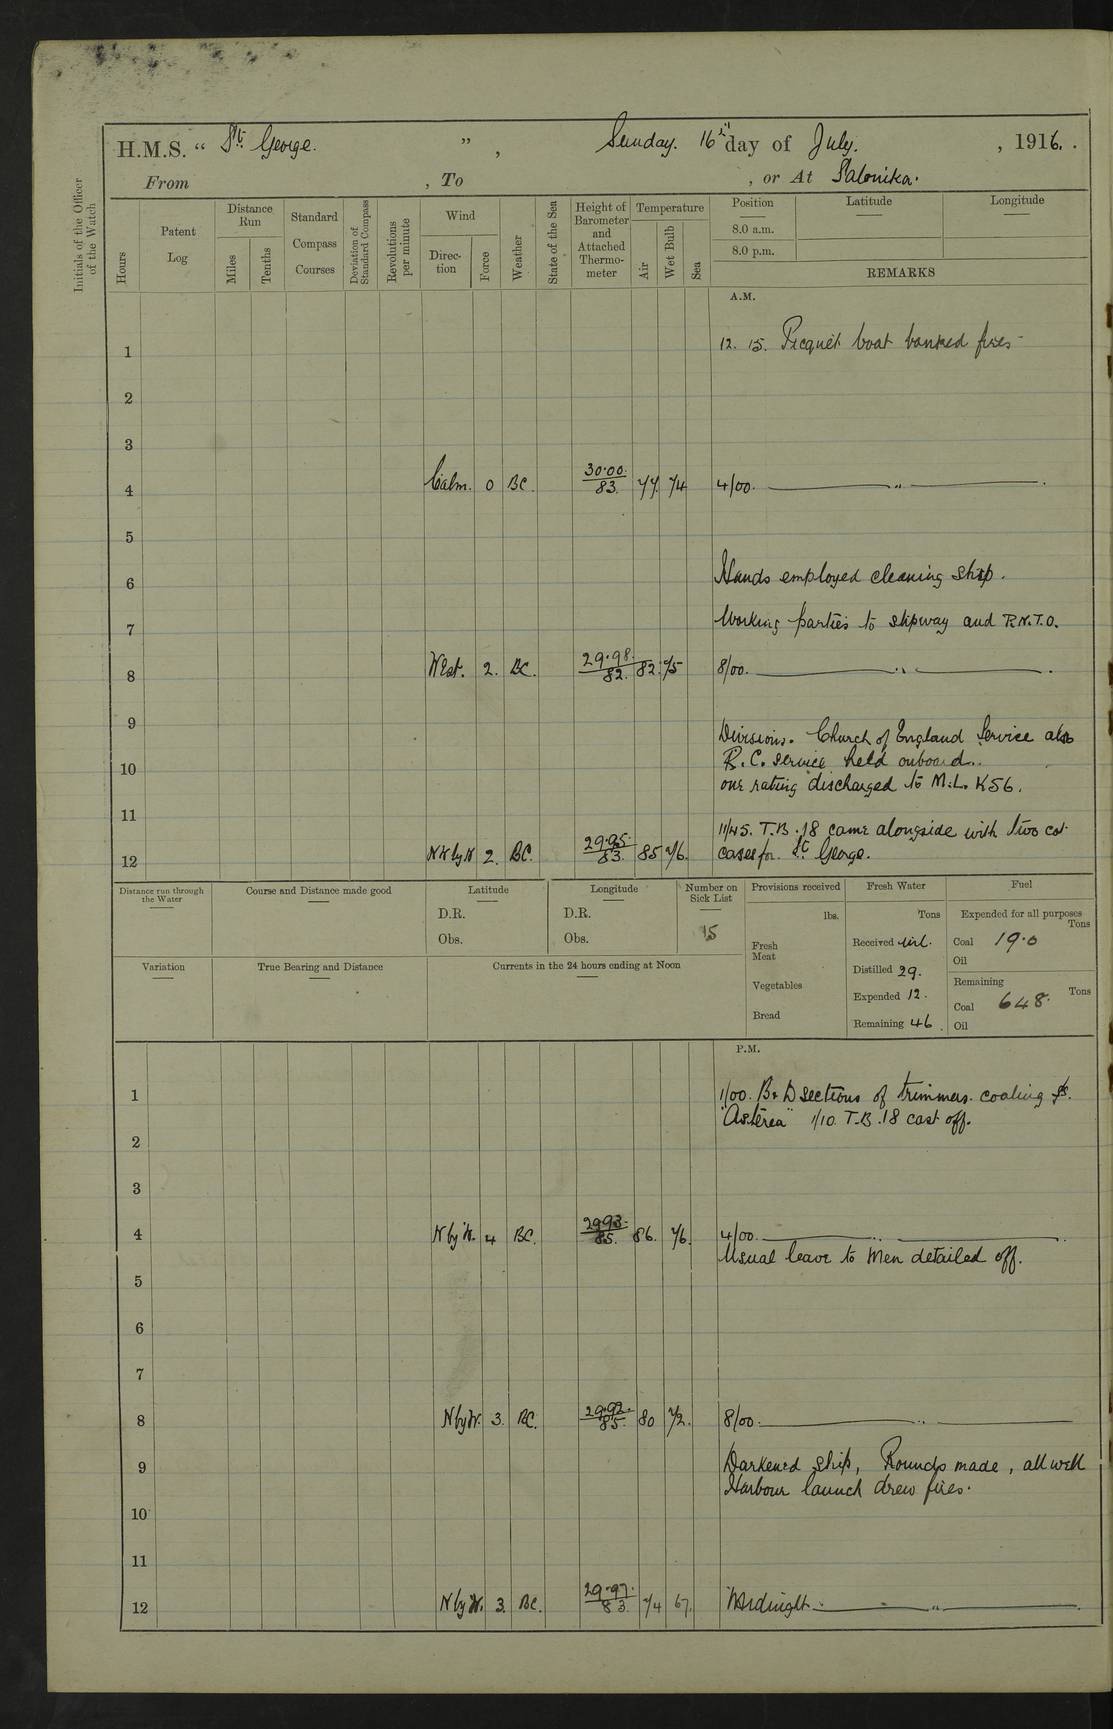 H.M.S. “ St. George. ” , Sunday. 16th day of July. , 1916. .
From , To , or At Salonika.
Initials of the Officer of the Watch
Hours
Patent Log
Distance Run
Miles
Tenths
Standard Compass Courses
Deviation of Standard Compass
Revolutions per minute
Wind
Direction
Force
Weather
State of the Sea
Height of Barometer and Attached Thermometer
Temperature
Air
Wet Bulb
Sea
Position
8.0 a.m.
8.0 p.m.
Latitude
Longitude
REMARKS
A.M.
1 12. 15. Picquet boat banked fires -
2
3
4 Calm. 0 BC. 30.00. 83. 77. 74 4/00. ——— „ ———.
5
6 Hands employed cleaning ship.
7 Working parties to slipway and P.N.T.O.
8 West. 2. BC. 29.98. 82. 82. 75 8/00. ——— „ ———.
9 Divisions. Church of England Service also
10 R.C. service held onboard..
one rating discharged to M.L. K56.
11 11/45. T.B. 18 came alongside with two cot
12 2. BC. 29.95. 83. 85 76. cases for St. George.
Distance run through the Water
Course and Distance made good
Latitude
D.R.
Obs.
Longitude
D.R.
Obs.
Number on Sick List
15
Provisions received
lbs.
Fresh Meat
Vegetables
Bread
Fresh Water
Tons
Received nil.
Distilled 29.
Expended 12.
Remaining 46.
Fuel
Expended for all purposes
Tons
Coal 19.0
Oil
Remaining
Tons
Coal 648.
Oil
Variation
True Bearing and Distance
Currents in the 24 hours ending at Noon
P.M.
1 1/00. B & D sections of trimmers coaling
"Asterea" 1/10. T.B. 18 cast off.
2
3
4 N by W. 4 BC. 29.93. 85. 86. 76. 4/00. ——— „ ———
Usual leave to Men detailed off.
5
6
7
8 N by W. 3. BC. 29.92. 85. 80 72. 8/00. ——— „ ———
9 Darkened ship, Rounds made, all well
Harbour launch drew fires.
10
11
12 N by W. 3. BC. 29.97. 83. 74 67. Midnight ——— „ ———.